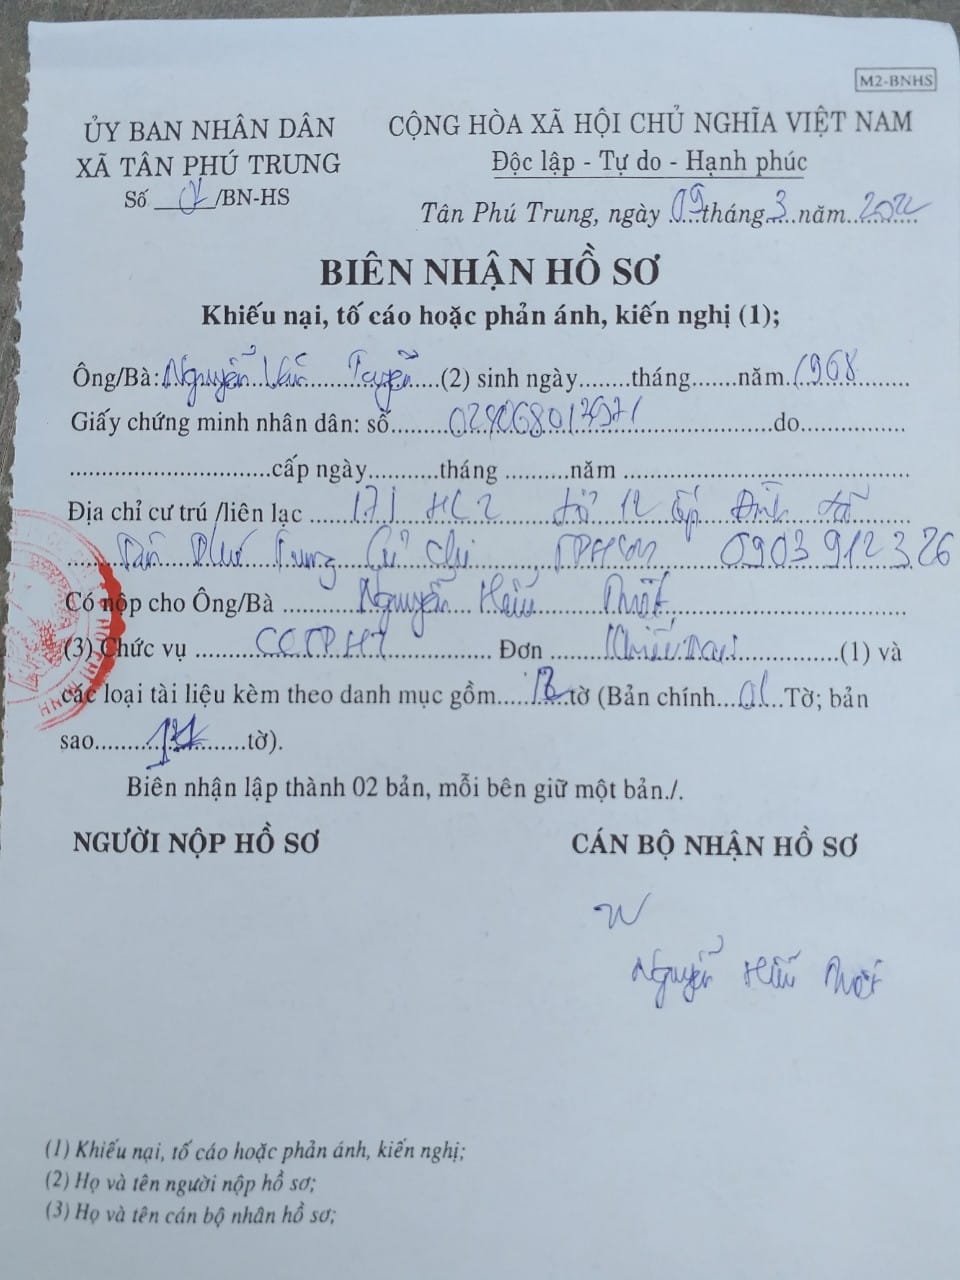 M2-BNHS
ỦY BAN NHÂN DÂN
XÃ TÂN PHÚ TRUNG
Số /BN-HS
CỘNG HÒA XÃ HỘI CHỦ NGHĨA VIỆT NAM
Độc lập - Tự do - Hạnh phúc
Tân Phú Trung, ngày 09 tháng 3 năm 2022
BIÊN NHẬN HỒ SƠ
Khiếu nại, tố cáo hoặc phản ánh, kiến nghị (1);
Ông/Bà: Nguyễn Văn (2) sinh ngày.......tháng.......năm 1968
Giấy chứng minh nhân dân: số..........do...............
.............................cấp ngày..........tháng .........năm ..........................................
Địa chỉ cư trú /liên lạc 171 HL2 tổ 12 ấp Đình
Tân Phú Trung Củ Chi TPHCM 0903 912 326
Có nộp cho Ông/Bà Nguyễn Hữu
(3) Chức vụ CCTPHT Đơn Khiếu nại (1) và
các loại tài liệu kèm theo danh mục gồm.......tờ (Bản chính...01...Tờ; bản
sao..........tờ).
Biên nhận lập thành 02 bản, mỗi bên giữ một bản./.
NGƯỜI NỘP HỒ SƠ
CÁN BỘ NHẬN HỒ SƠ
Nguyễn Hữu
(1) Khiếu nại, tố cáo hoặc phản ánh, kiến nghị;
(2) Họ và tên người nộp hồ sơ;
(3) Họ và tên cán bộ nhân hồ sơ;